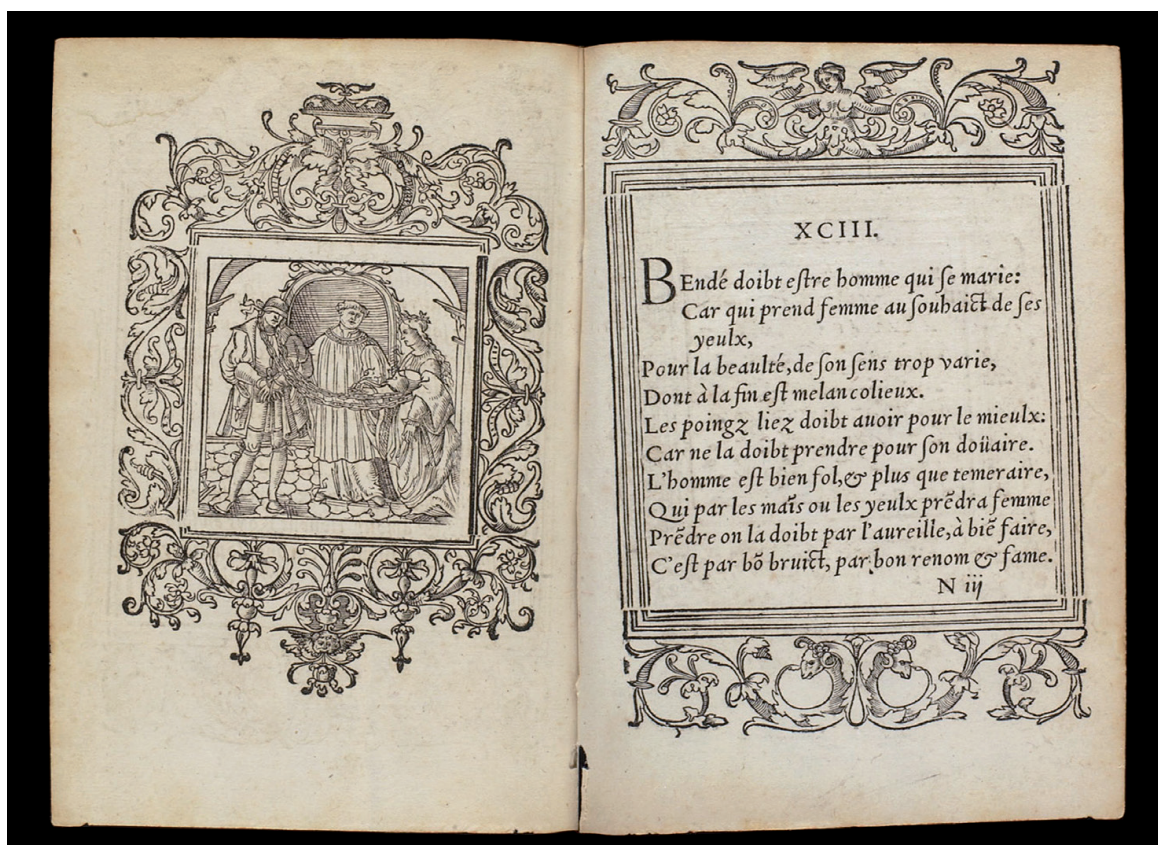 XCIII.
BEndé doibt eſtre homme qui ſe marie:
Car qui prend femme au ſouhaict de ſes
yeulx,
Pour la beaulté, de ſon ſens trop varie,
Dont à la fin eſt melancolieux.
Les poingz liez doibt auoir pour le mieulx:
Car ne la doibt prendre pour ſon doüaire.
L'homme eſt bien fol, & plus que temeraire,
Qui par les maĩs ou les yeulx prẽdra femme
Prẽdre on la doibt par l'aureille, à biẽ faire,
C'eſt par bõ bruict, par bon renom & fame.
N iij